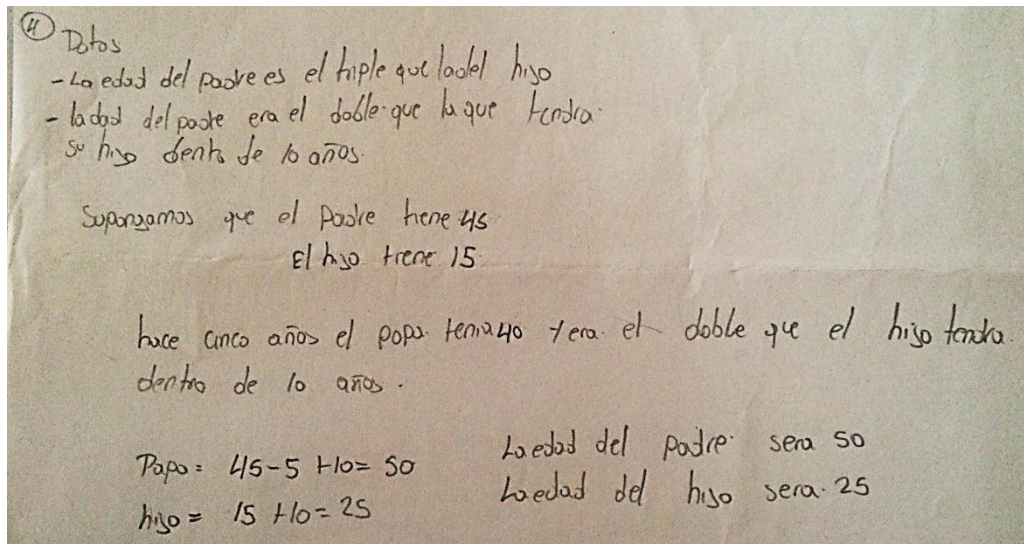 4 Datos
- La edad del padre es el triple que la del hijo
- la dad del padre era el doble que la que tendra
su hijo dentro de 10 años.
Supongamos que el Padre tiene 45
El hijo tiene 15
hace cinco años el papa tenia 40 y era el doble que el hijo tendra
dentro de 10 años.
Papa = 45-5 +10= 50
La edad del padre sera 50
hijo = 15 +10= 25
La edad del hijo sera 25